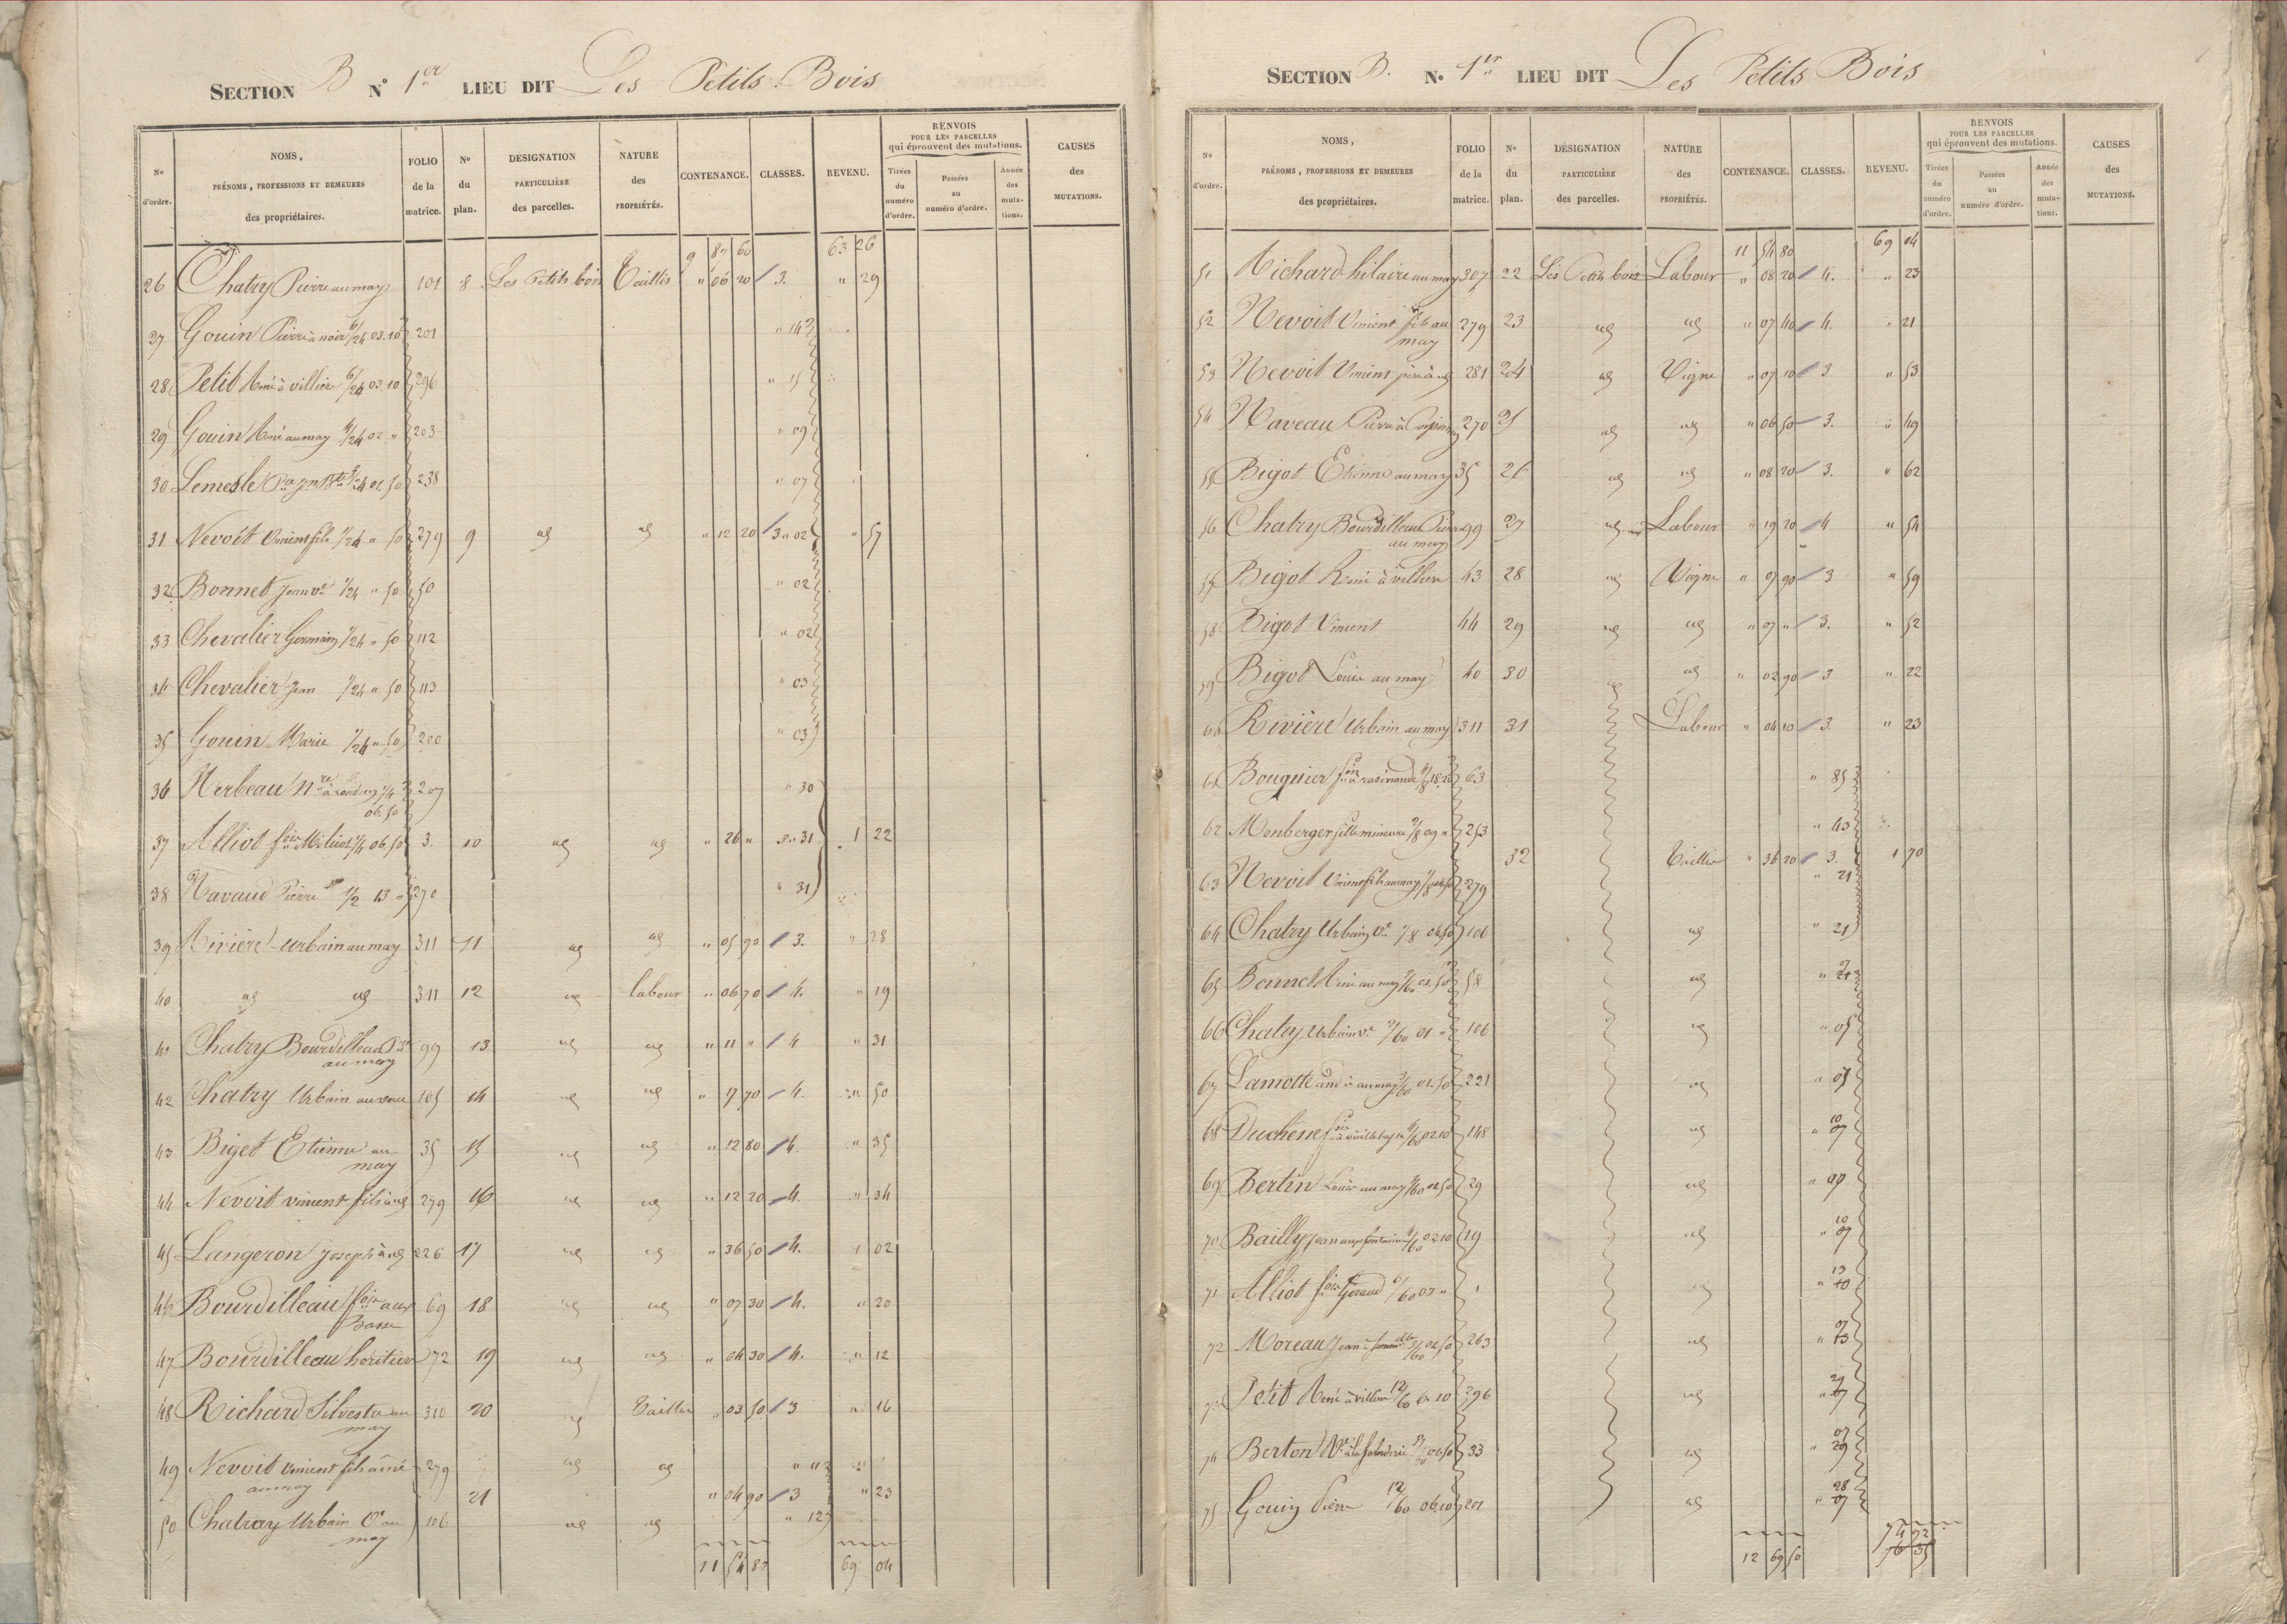 SECTION B N° 1er LIEU DIT Les Petits Bois
N° d'ordre.
NOMS, PRÉNOMS, PROFESSIONS ET DEMEURES des propriétaires.
FOLIO de la matrice.
N° du plan.
DÉSIGNATION PARTICULIÈRE des parcelles.
NATURE des PROPRIÉTÉS.
CONTENANCE.
CLASSES.
REVENU.
RENVOIS POUR LES PARCELLES qui éprouvent des mutations.
Tirées du numéro d'ordre.
Passées au numéro d'ordre.
Année des mutations.
CAUSES des MUTATIONS.
9 87 60 63 26
26 Chatry Pierre au may 101 8 Les Petits bois Taillis " 06 20 3. " 29
27 Gouin Pierre 6/24 03.10 201 " 14
28 Petit René à villiers 6/24 03 10 296 " 15
29 Gouin René au may 4/24 02 " 203 " 09
30 Lemesle 3/24 01 50 238 " 07
31 Nevoit Vincent fils 1/24 " 50 279 9 id id " 12 20 3 " 02 " 57
32 Bonnet Jean Ve 1/24 " 50 50 " 02
33 Chevalier Germain 1/24 " 50 112 " 02
34 Chevalier Jean 1/24 " 50 113 " 03
35 Gouin Marie 1/24 " 50 200 " 03
36 Herbeau 1/4 06.50 207 " 30
37 Alliot 1/4 06.50 3. 10 id id " 26 " 3 " 31 1 22
38 Navaud Pierre 1/2 13 " 270 " 31
39 Rivière Urbain au may 311 11 id id " 05 90 3. " 28
40 id id 311 12 id labour " 06 70 4. " 19
41 Chatry Bourdilleau Pre au may 99 13 id id " 11 " 4 " 31
42 Chatry Urbain 105 14 id id " 17 70 4. " 50
43 Bigot Etienne au may 35 15 id id " 12 80 4. " 35
44 Nevoit vincent fils à id 279 16 id id " 12 20 4. " 34
45 Langeron Joseph à id 226 17 id id " 36 50 4. 1 02
46 Bourdilleau 69 18 id id " 07 30 4. " 20
47 Bourdilleau héritiers 72 19 id id " 04 30 4. " 12
48 Richard Silvestre au may 310 20 id Taillis " 03 50 3 " 16
49 Nevoit Vincent fils aîné au may 279 id id " 11
21 " 04 90 3 " 23
50 Chatray Urbain Ve au may 106 id id " 12
11 54 80 69 04
SECTION B. N° 1er LIEU DIT Les Petits Bois
N° d'ordre.
NOMS, PRÉNOMS, PROFESSIONS ET DEMEURES des propriétaires.
FOLIO de la matrice.
N° du plan.
DÉSIGNATION PARTICULIÈRE des parcelles.
NATURE des PROPRIÉTÉS.
CONTENANCE.
CLASSES.
REVENU.
RENVOIS POUR LES PARCELLES qui éprouvent des mutations.
Tirées du numéro d'ordre.
Passées au numéro d'ordre.
Année des mutations.
CAUSES des MUTATIONS.
11 54 80 69 04
51 Richard hilaire au may 307 22 Les Petits bois Labour " 08 20 4. " 23
52 Nevoit Vincent fils au may 279 23 id id " 07 40 4. " 21
53 Nevoit Vincent père à id 281 24 id Vigne " 07 10 3 " 53
54 Naveau Pierre 270 25 id id " 06 50 3. " 49
55 Bigot Etienne au may 35 26 id id " 08 20 3. " 62
56 Chatry Bourdilleau Pierre au may 99 27 id Labour " 19 20 4 " 54
57 Bigot René à villiers 43 28 id Vigne " 07 90 3 " 59
58 Bigot Vincent 44 29 id id " 07 " 3. " 52
59 Bigot Louis au may 40 30 id id " 02 90 3 " 22
60 Rivière Urbain au may 311 31 Labour " 04 10 3. " 23
61 Bouquier 4/8 18.20 63 " 85
62 Monberger fille mineure 2/8 09 " 253 " 43
32 Taillis " 36 20 3. 1 70
63 Nevoit Vincent fils au may 1/8 04.50 279 " 21
64 Chatry Urbain Ve 1/8 04.50 106 id " 21
65 Bonnet René au may 58 id
66 Chatry Urbain Ve 2/60 01 " 106 id " 05
67 Lamotte 3/60 01.50 221 id " 05
68 Duchêne 4/60 02 10 148 id " 10 07
69 Bertin Louis au may 29 id " 07
70 Bailly Jean 4/60 02 10 19 id " 10 07
71 Alliot Géraud 6/60 03 " 1 id " 13 10
72 Moreau Jean 263 id " 07 13
73 Petit René à villiers 12/60 6 10 296 id
74 Berton 33 id " 07 29
75 Gouin Pierre 12/60 06.10 201 id " 28 07
12 69 50 74 92